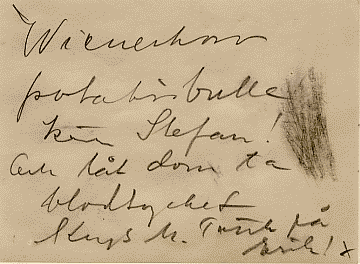 Wienerkorv
potatisbulle
kära Stefan!
Och låt dom ta
blodtrycket
Tänk på
Erik! x